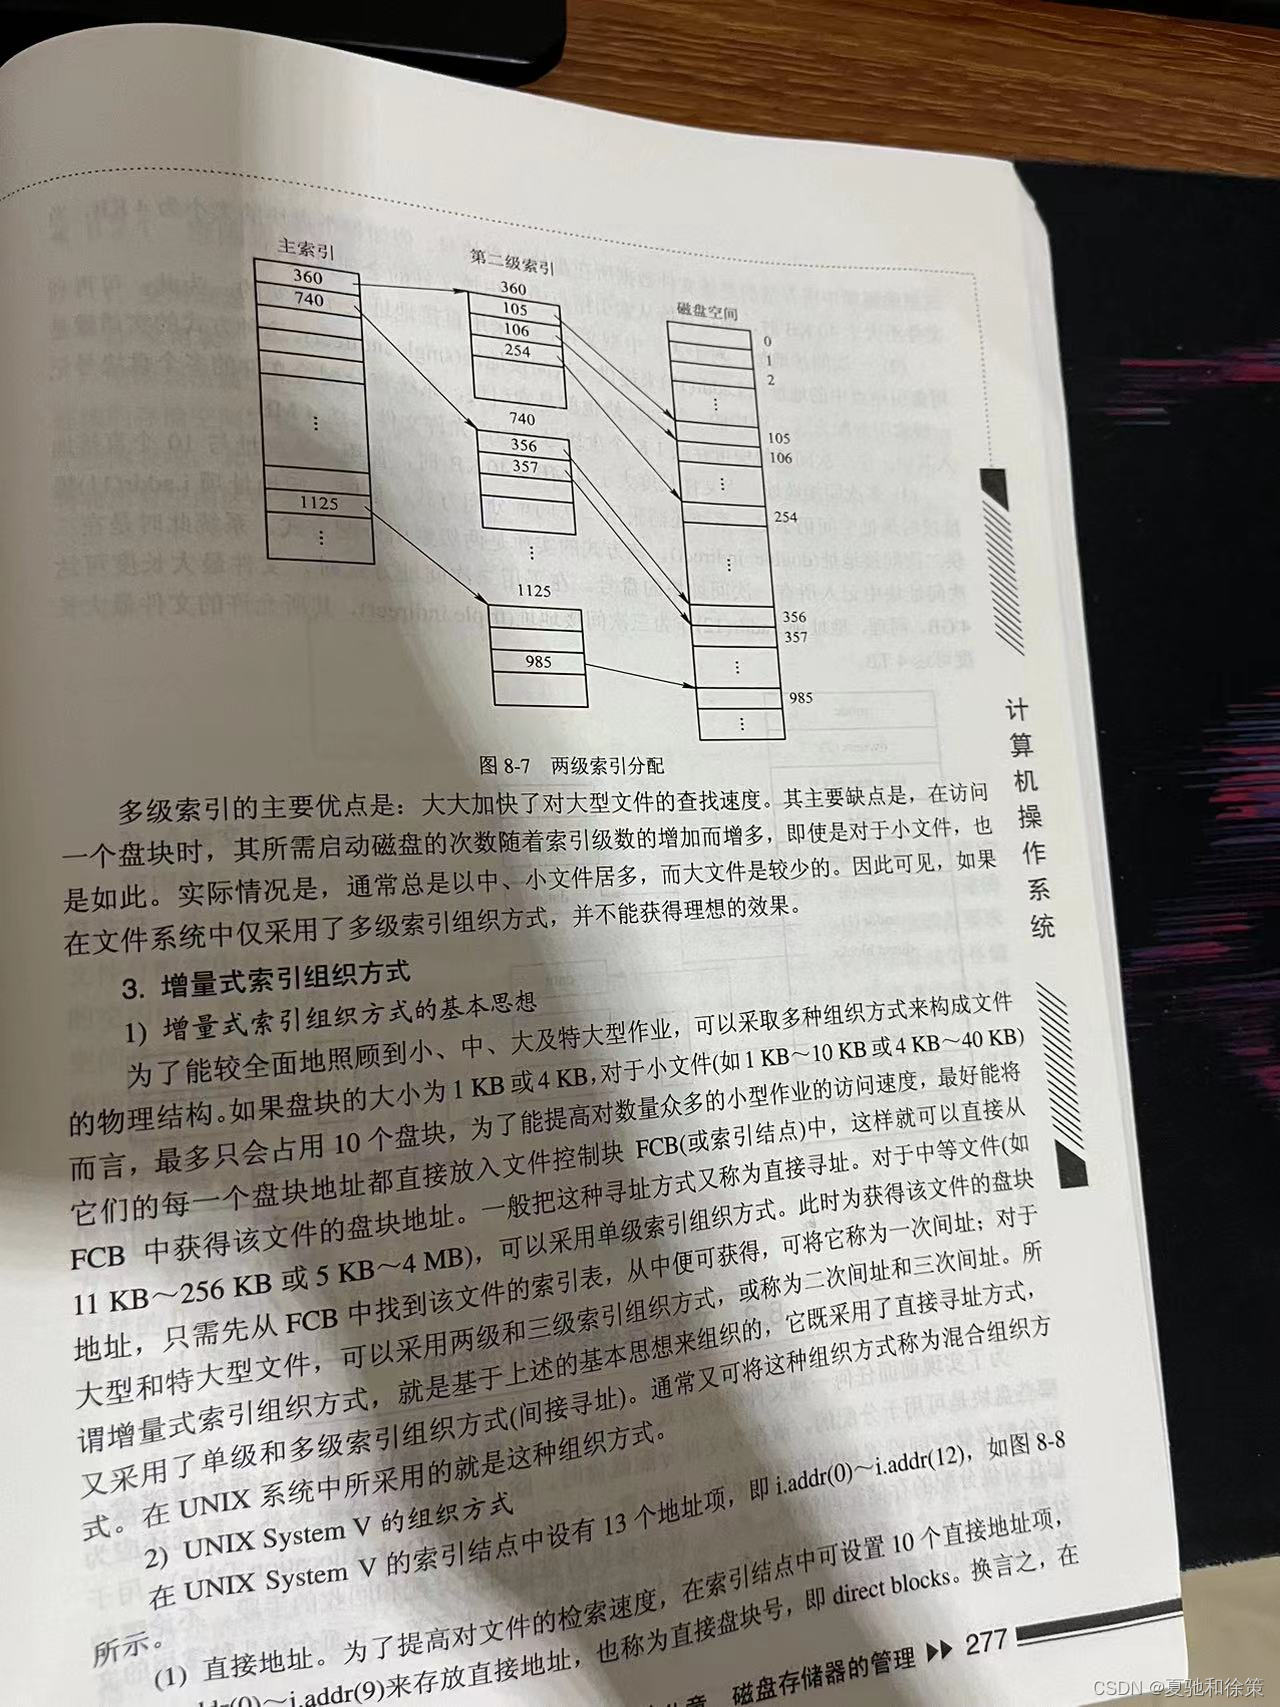 主索引
360
740
⋮
1125
⋮
第二级索引
360
105
106
254
740
356
357
⋮
1125
985
磁盘空间
0
1
2
⋮
105
106
⋮
254
⋮
356
357
⋮
985
⋮
图 8-7 两级索引分配
多级索引的主要优点是：大大加快了对大型文件的查找速度。其主要缺点是，在访问
一个盘块时，其所需启动磁盘的次数随着索引级数的增加而增多，即使是对于小文件，也
是如此。实际情况是，通常总是以中、小文件居多，而大文件是较少的。因此可见，如果
在文件系统中仅采用了多级索引组织方式，并不能获得理想的效果。
3. 增量式索引组织方式
1) 增量式索引组织方式的基本思想
为了能较全面地照顾到小、中、大及特大型作业，可以采取多种组织方式来构成文件
的物理结构。如果盘块的大小为 1 KB 或 4 KB，对于小文件(如 1 KB～10 KB 或 4 KB～40 KB)
而言，最多只会占用 10 个盘块，为了能提高对数量众多的小型作业的访问速度，最好能将
它们的每一个盘块地址都直接放入文件控制块 FCB(或索引结点)中，这样就可以直接从
FCB 中获得该文件的盘块地址。一般把这种寻址方式又称为直接寻址。对于中等文件(如
11 KB～256 KB 或 5 KB～4 MB)，可以采用单级索引组织方式。此时为获得该文件的盘块
地址，只需先从 FCB 中找到该文件的索引表，从中便可获得，可将它称为一次间址；对于
大型和特大型文件，可以采用两级和三级索引组织方式，或称为二次间址和三次间址。所
谓增量式索引组织方式，就是基于上述的基本思想来组织的，它既采用了直接寻址方式，
又采用了单级和多级索引组织方式(间接寻址)。通常又可将这种组织方式称为混合组织方
式。在 UNIX 系统中所采用的就是这种组织方式。
2) UNIX System V 的组织方式
在 UNIX System V 的索引结点中设有 13 个地址项，即 i.addr(0)～i.addr(12)，如图 8-8
所示。
(1) 直接地址。为了提高对文件的检索速度，在索引结点中可设置 10 个直接地址项，
ddr(0)～i.addr(9)来存放直接地址，也称为直接盘块号，即 direct blocks。换言之，在
计算机操作系统
章 磁盘存储器的管理 ▶▶ 277
CSDN @夏驰和徐策